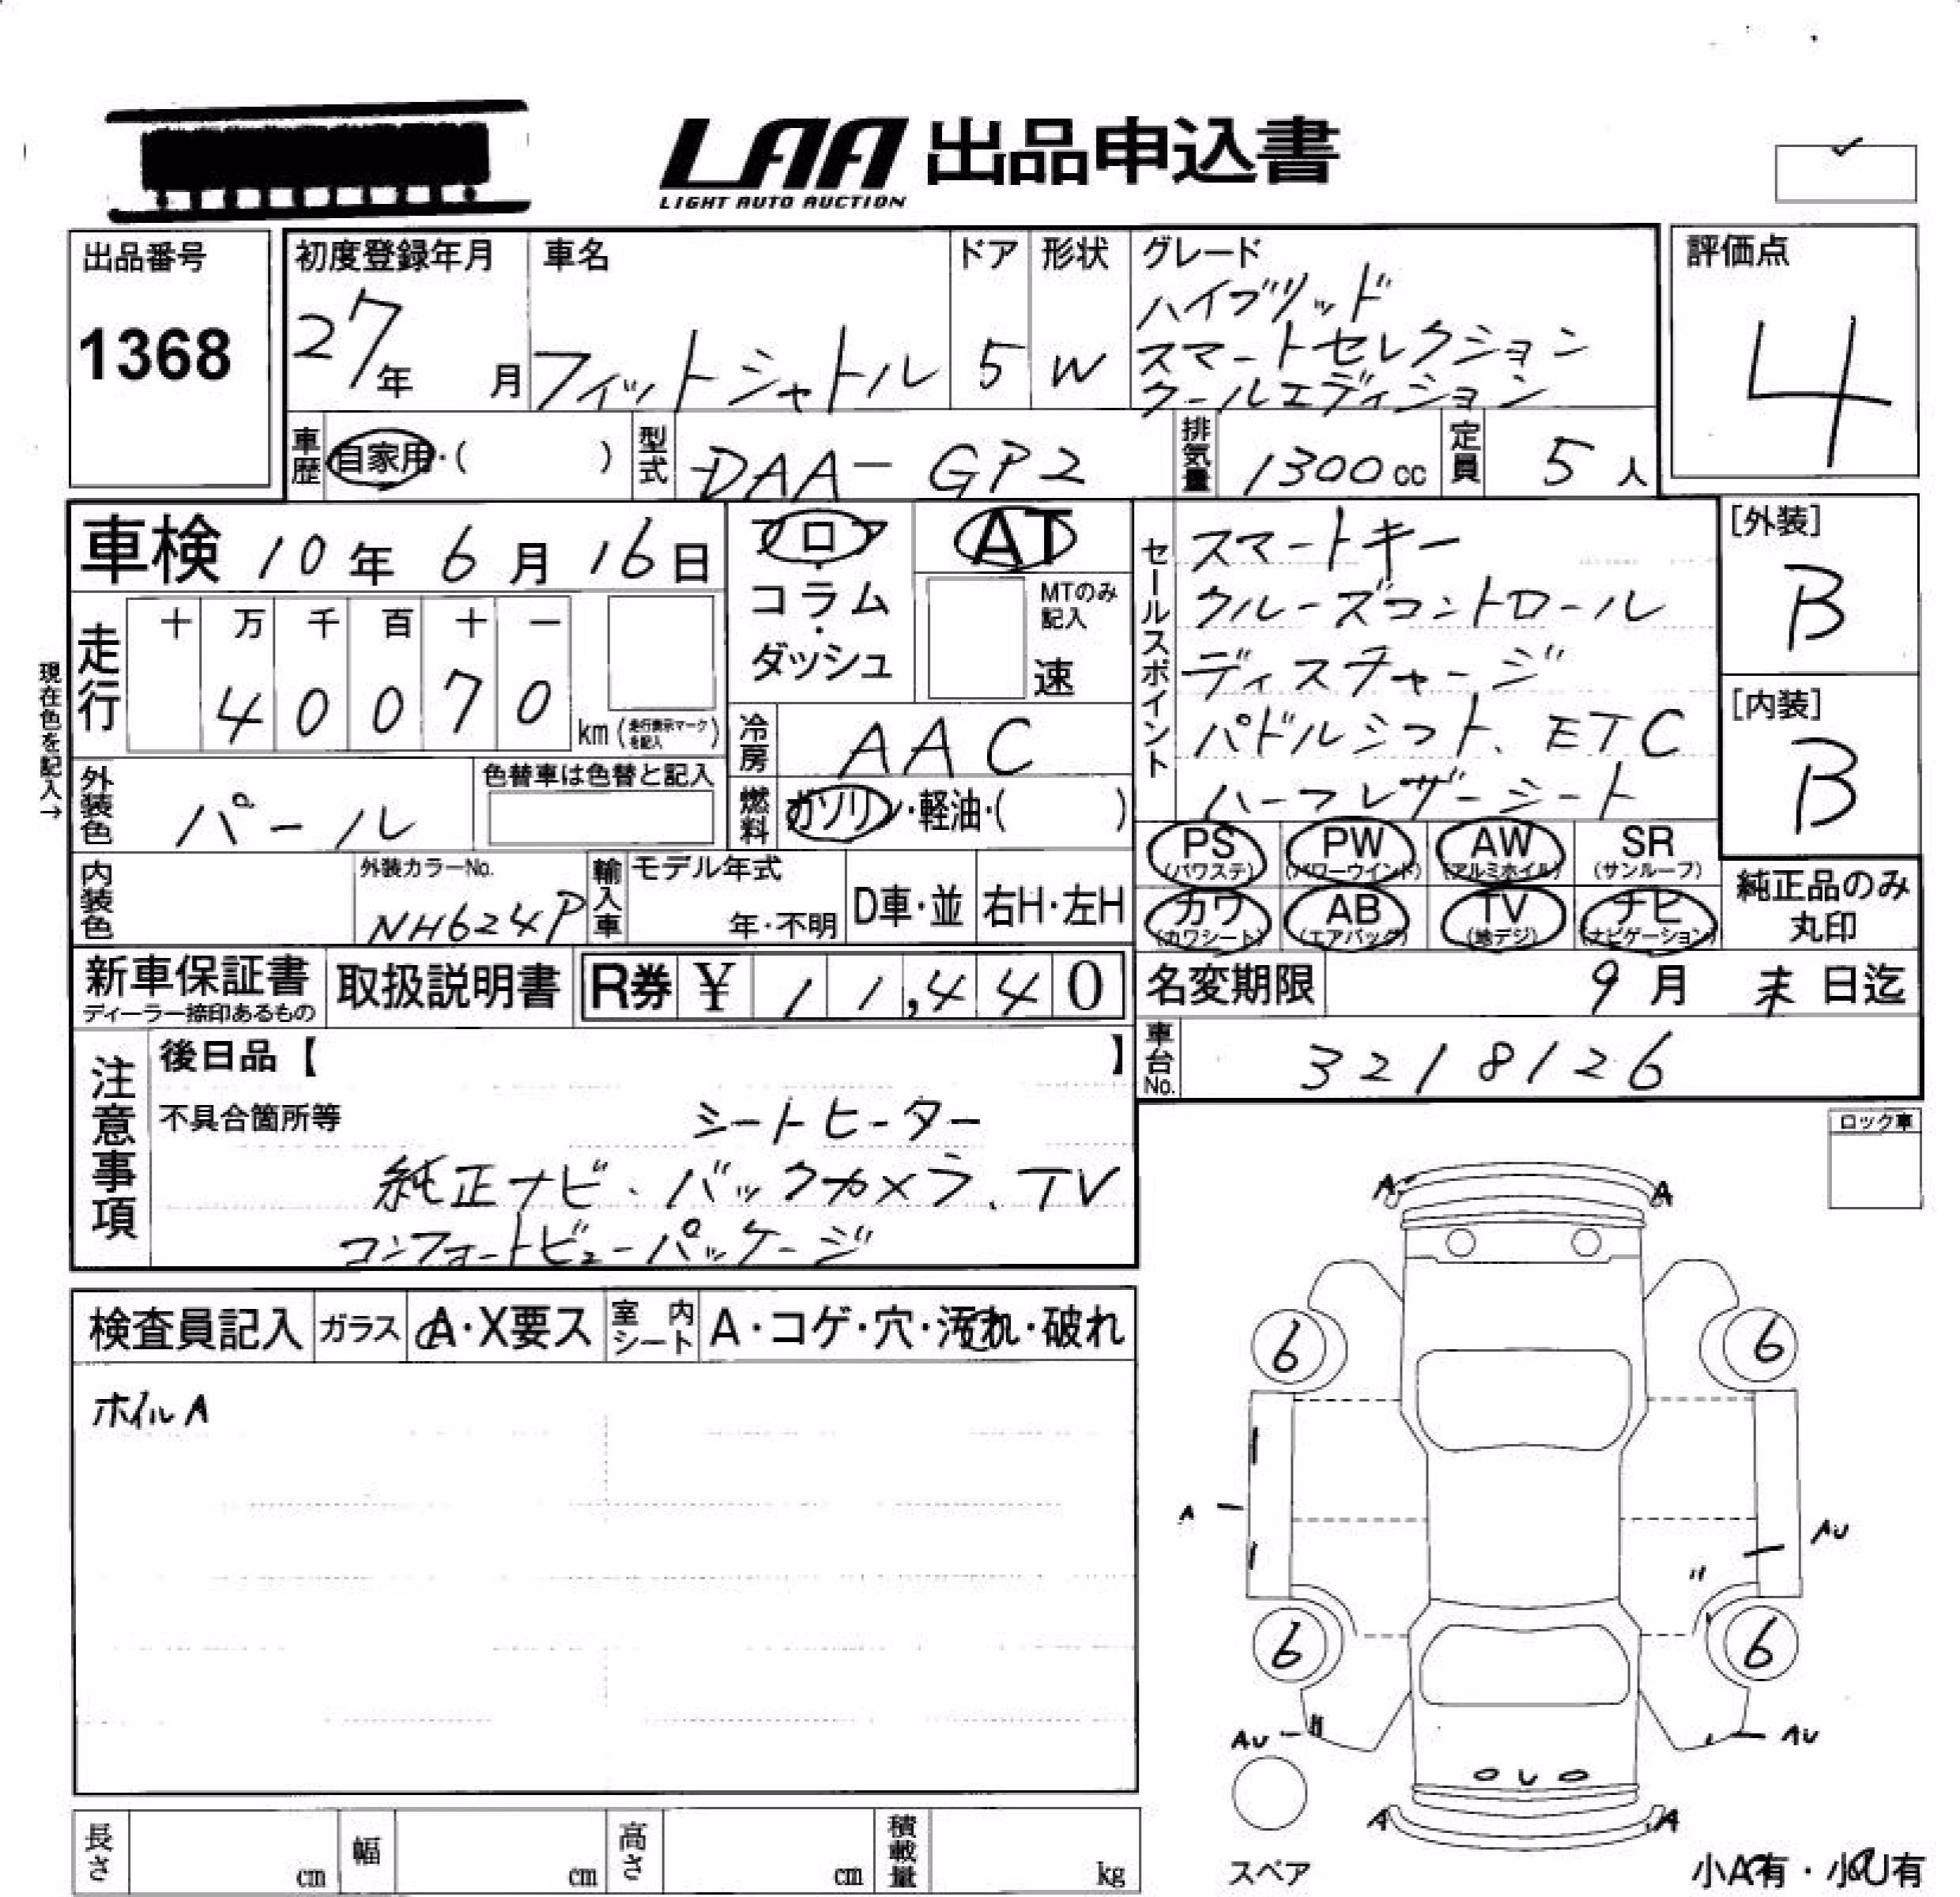 LAA 出品申込書
LIGHT AUTO AUCTION
出品番号
1368
初度登録年月
27年 月
車名
フィットシャトル
ドア
5
形状
W
グレード
ハイブリッド
スマートセレクション
クールエディション
評価点
4
車歴 自家用・( )
型式 DAA-GP2
排気量 1300cc
定員 5人
車検 10年 6月 16日
フロア・コラム・ダッシュ
AT
MTのみ記入
速
セールスポイント
スマートキー
クルーズコントロール
ディスチャージ
パドルシフト、ETC
ハーフレザーシート
[外装]
B
[内装]
B
現在色を記入→
走行
十 万 千 百 十 一
4 0 0 7 0 km (走行表示マークを記入)
冷房 AAC
外装色 パール
色替車は色替と記入
燃料 ガソリン・軽油・( )
PS (パワステ) PW (パワーウインド) AW (アルミホイル) SR (サンルーフ)
カワ (カワシート) AB (エアバッグ) TV (地デジ) ナビ (ナビゲーション)
純正品のみ丸印
内装色
外装カラーNo.
NH624P
輸入車
モデル年式
年・不明
D車・並
右H・左H
新車保証書
ディーラー捺印あるもの
取扱説明書
R券 ¥ 11,440
名変期限 9月 末日迄
車台No. 3218126
注意事項
後日品【 】
不具合箇所等 シートヒーター
純正ナビ、バックカメラ、TV
コンフォートビューパッケージ
ロック車
検査員記入 ガラス A・X要ス 室内シート A・コゲ・穴・汚れ・破れ
ホイルA
A A
6 6
A AU
〃
6 6
AU AU
A A
スペア
小A有・小U有
長さ cm 幅 cm 高さ cm 積載量 kg